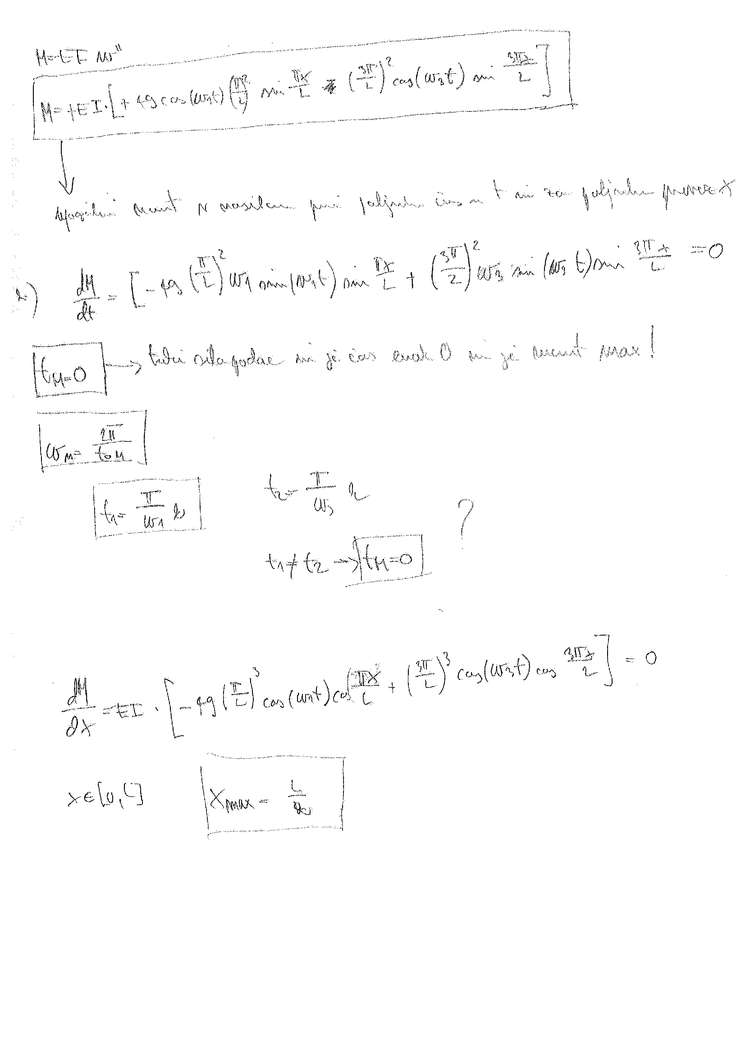 M = -EI w''
M = +EI·[+49 cos(ω₁t) (π/L)² sin πx/L - (3π/L)² cos(ω₃t) sin 3πx/L]
upogibni moment v nosilcu pri poljubnem času t in za poljuben prerez x
2) dM/dt = [-49 (π/L)² ω₁ sin(ω₁t) sin πx/L + (3π/L)² ω₃ sin(ω₃t) sin 3πx/L = 0
t_M=0 → sila je čas enak 0 in je moment max!
ω_M = 2π/t_0M
t₁ = π/ω₁ t₂ = π/ω₃ ?
t₁ ≠ t₂ → t_M=0
dM/dx = EI·[-49 (π/L)³ cos(ω₁t) cos πx/L + (3π/L)³ cos(ω₃t) cos 3πx/L] = 0
x∈[0,L] x_max = L/2